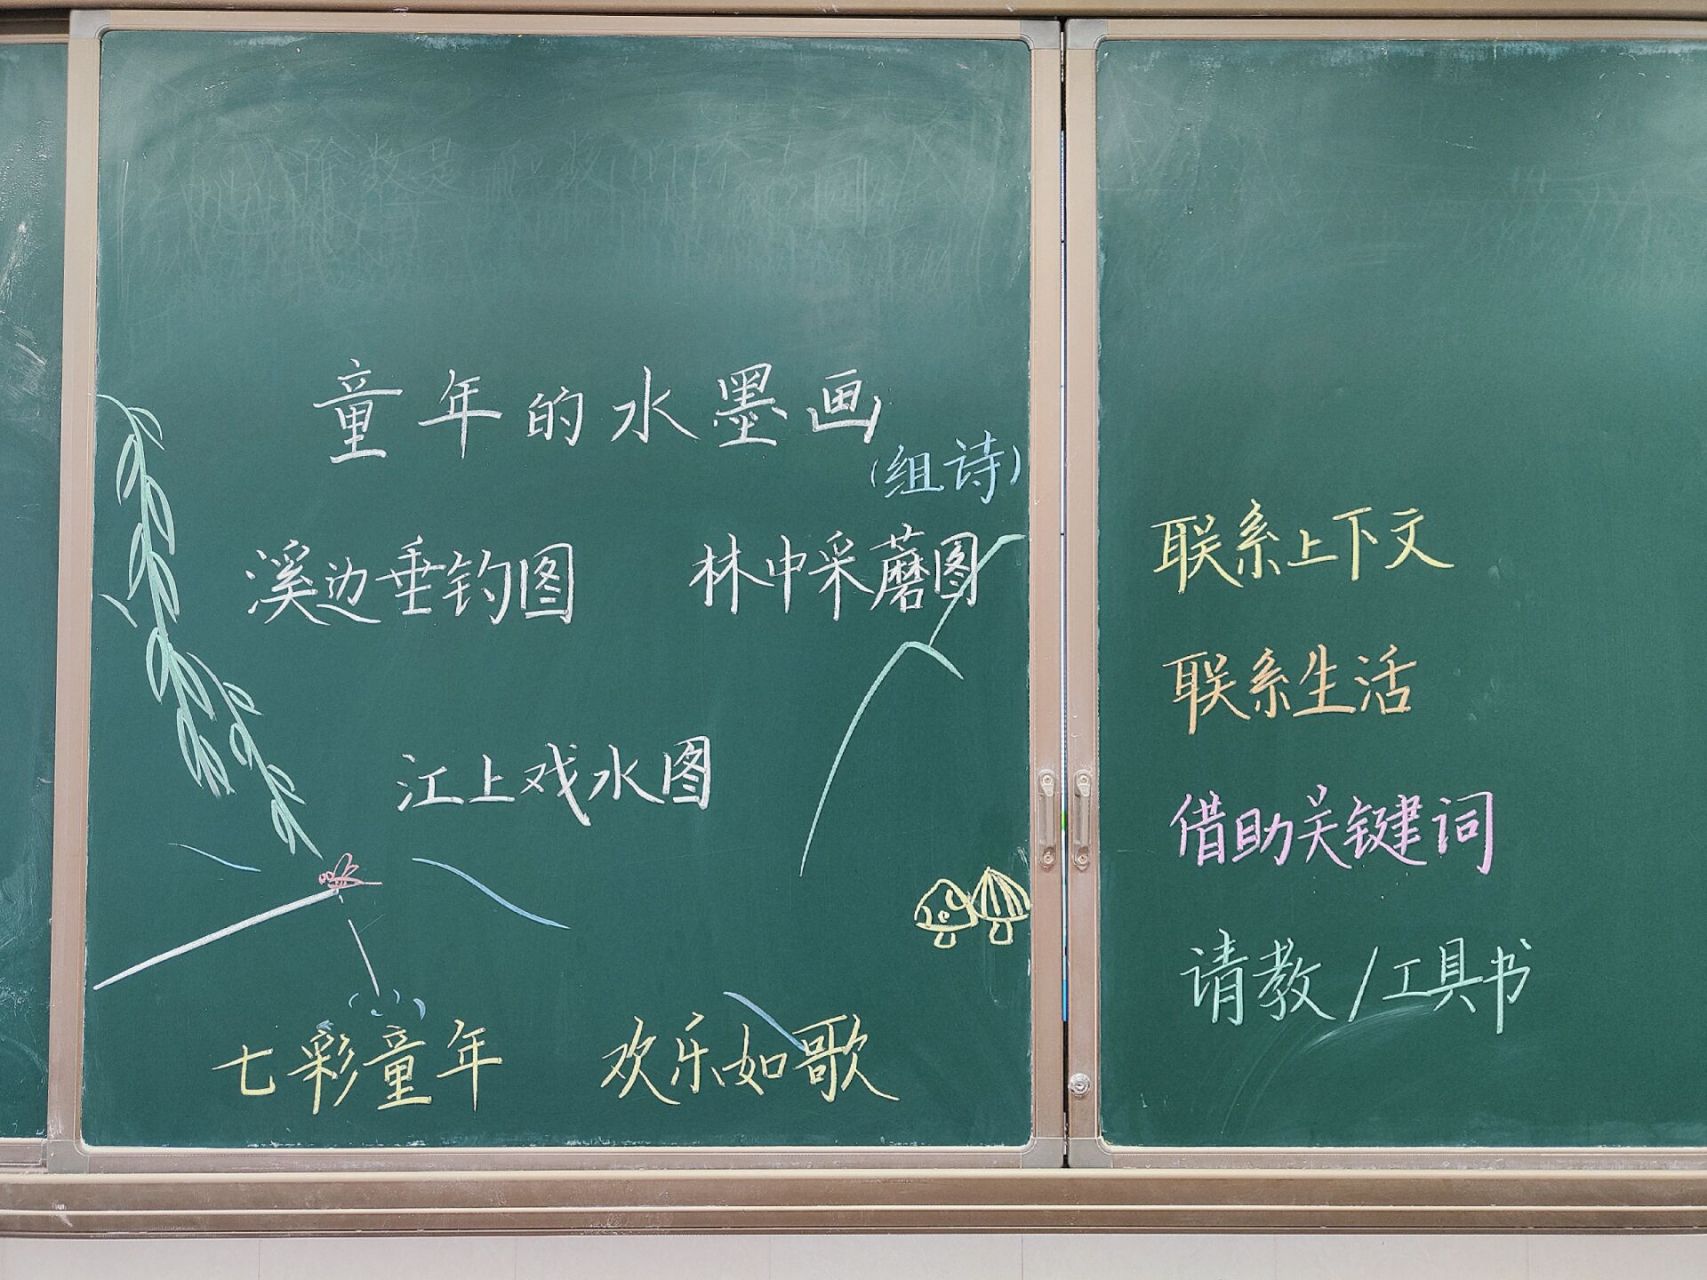 童年的水墨画
(组诗)
溪边垂钓图
林中采蘑图
江上戏水图
七彩童年 欢乐如歌
联系上下文
联系生活
借助关键词
请教/工具书